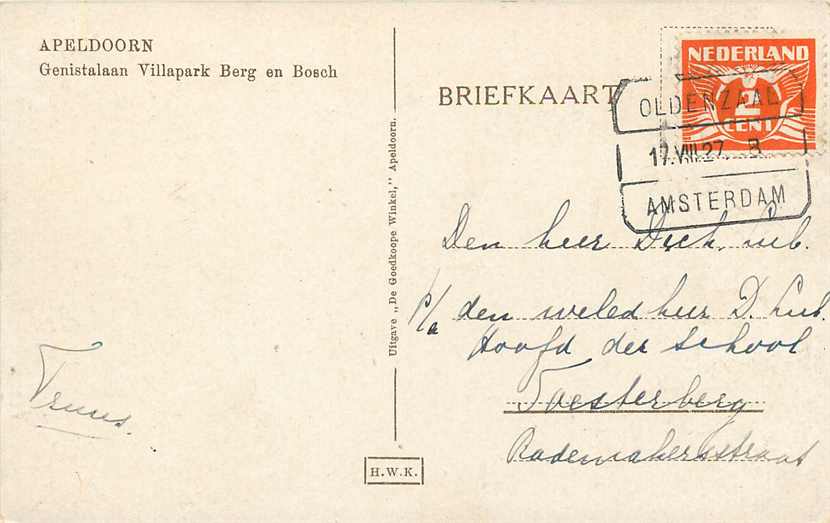 APELDOORN
Genistalaan Villapark Berg en Bosch
Truus.
Uitgave „De Goedkoope Winkel," Apeldoorn.
H.W.K.
BRIEFKAART
NEDERLAND
2
CENT
OLDENZAAL
17.VIII.27. B
AMSTERDAM
Den heer Dick
p/a den weled heer D.
Hoofd der School
Soesterberg
Rademakerstraat